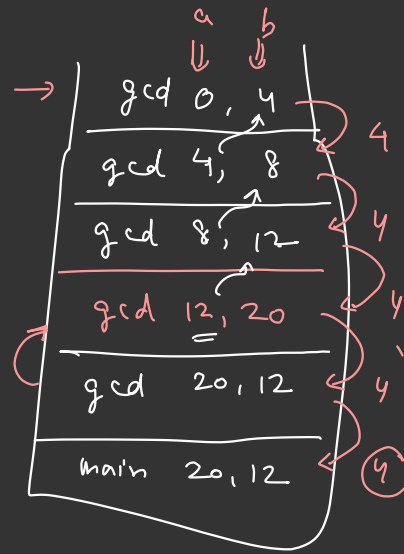 a b
gcd 0, 4
4
gcd 4, 8
4
gcd 8, 12
4
gcd 12, 20
4
gcd 20, 12
main 20, 12
4